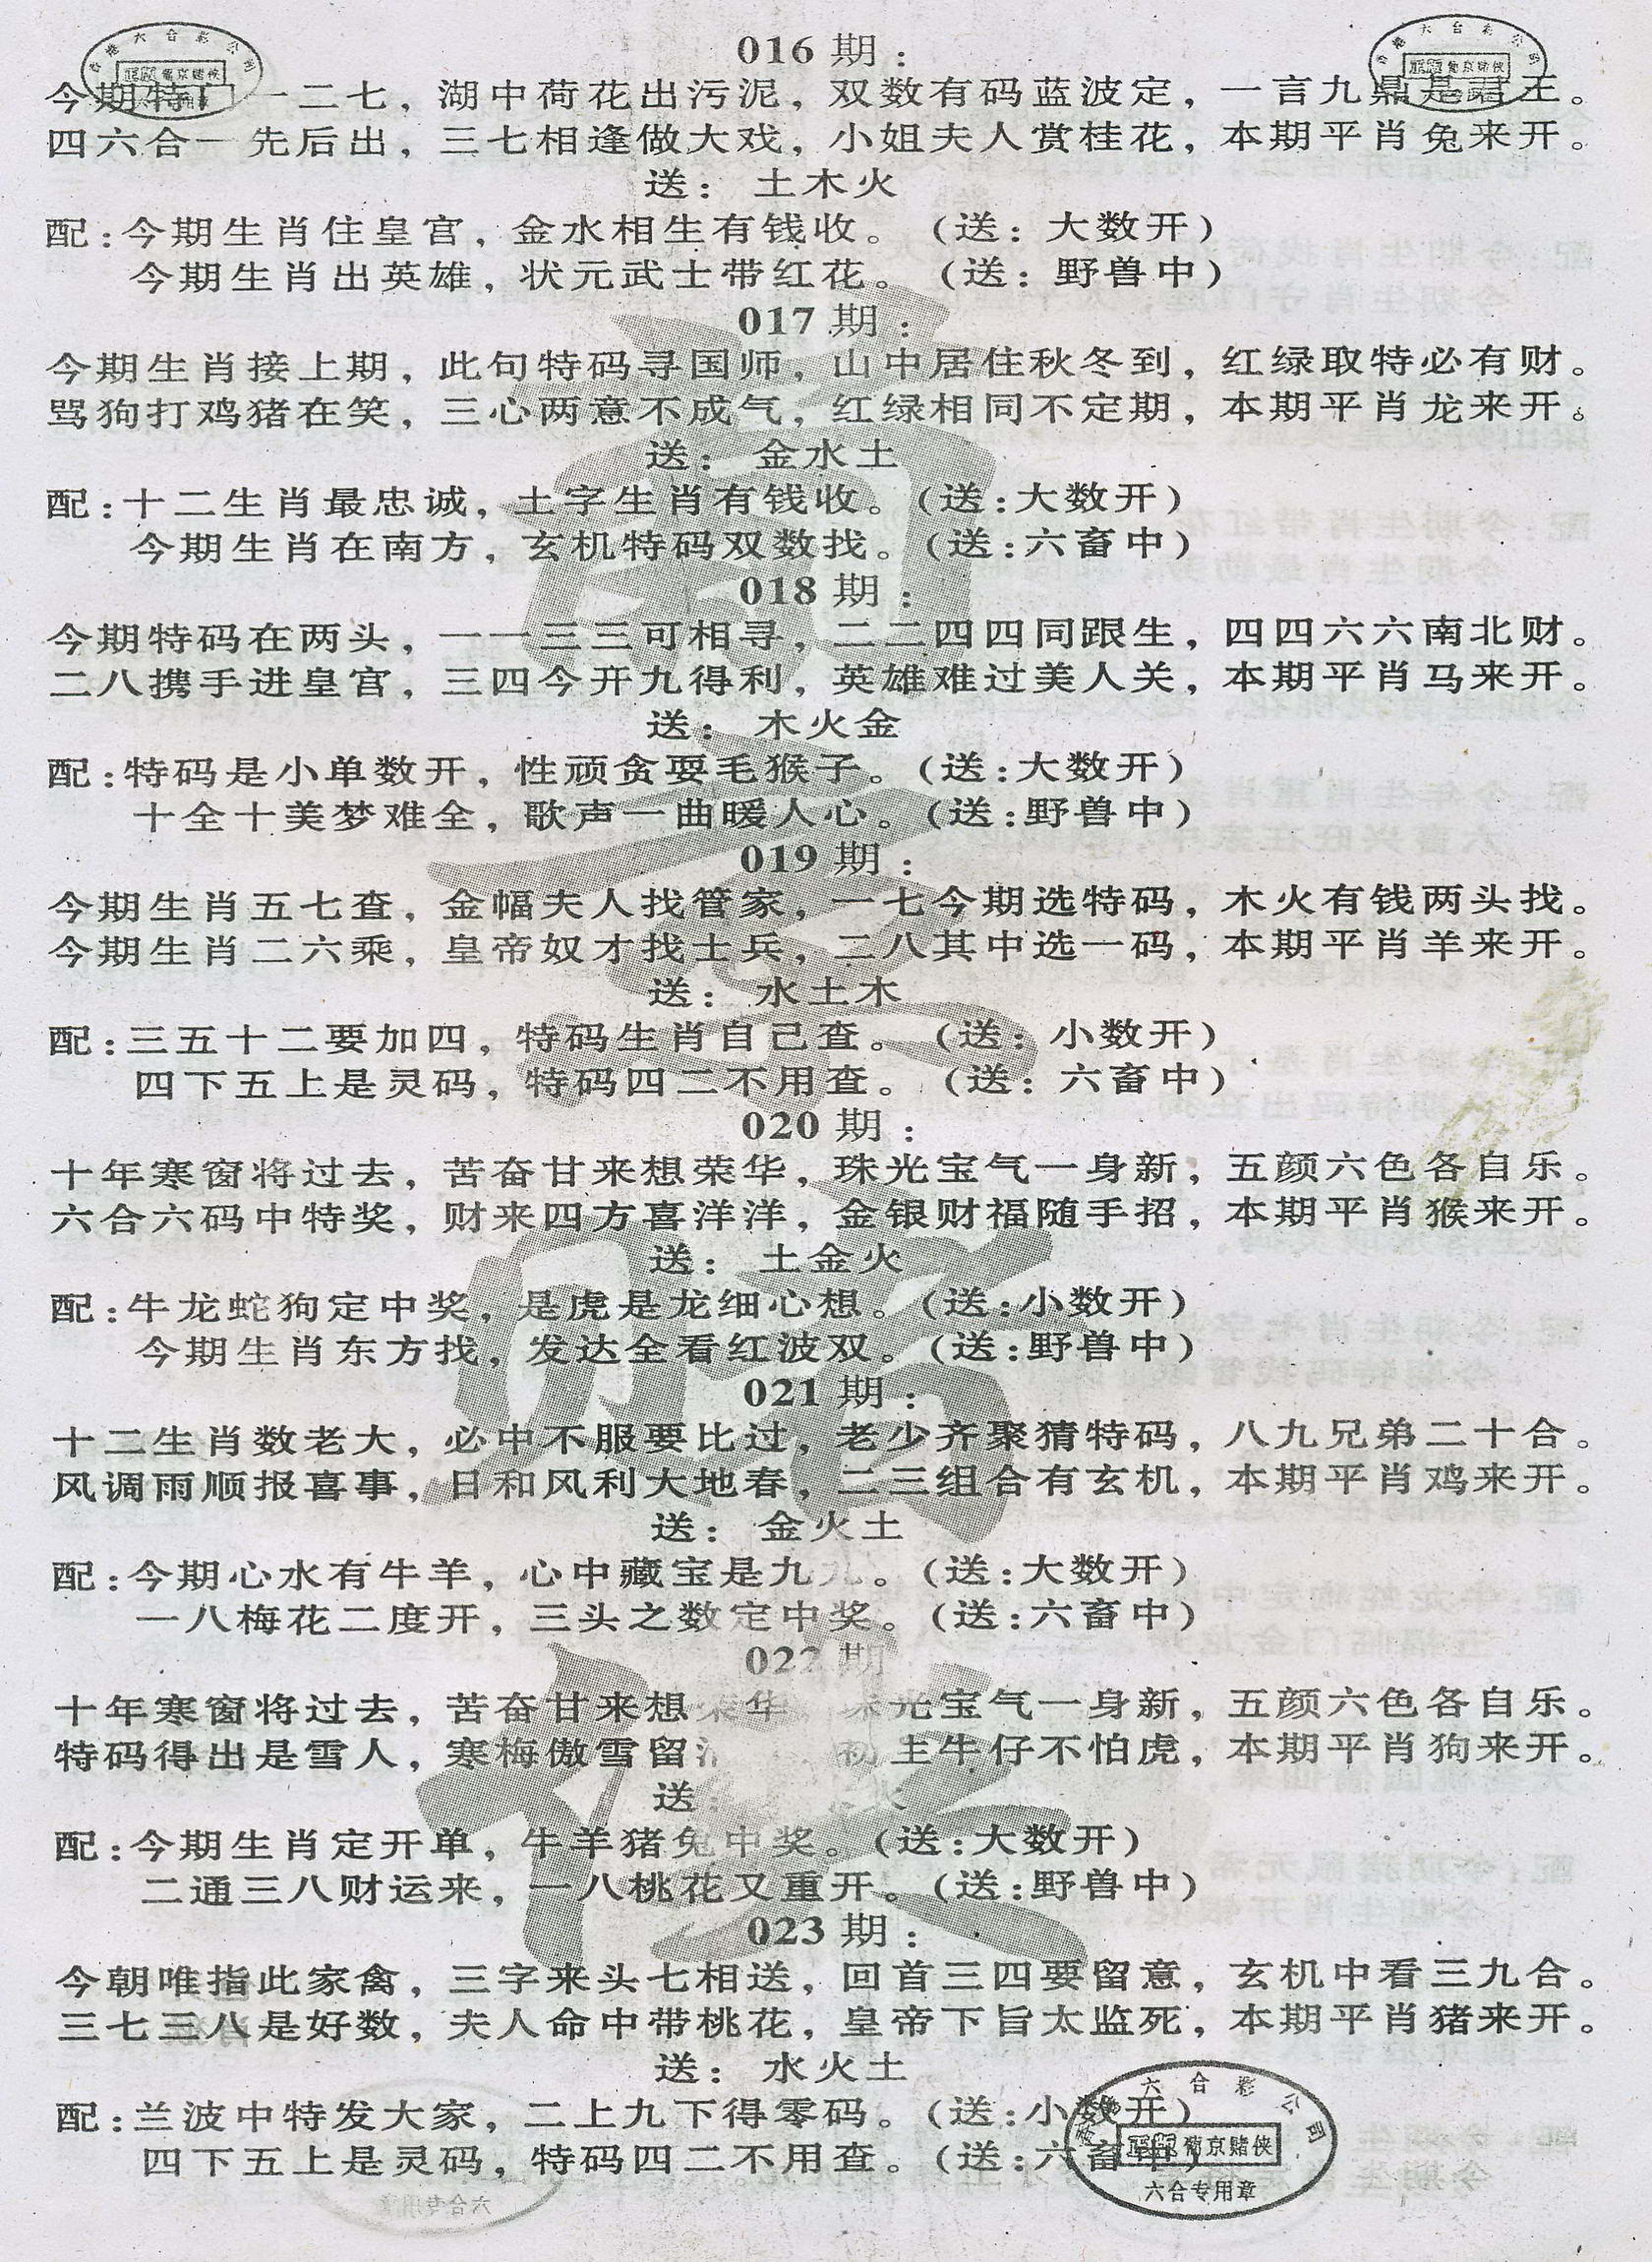 016 期：
今期特 一二七，湖中荷花出污泥，双数有码蓝波定，一言九鼎是 王。
四六合一先后出，三七相逢做大戏，小姐夫人赏桂花，本期平肖兔来开。
送： 土木火
配：今期生肖住皇宫，金水相生有钱收。（送：大数开）
今期生肖出英雄，状元武士带红花。（送：野兽中）
017 期：
今期生肖接上期，此句特码寻国师，山中居住秋冬到，红绿取特必有财。
骂狗打鸡猪在笑，三心两意不成气，红绿相同不定期，本期平肖龙来开。
送： 金水土
配：十二生肖最忠诚，土字生肖有钱收。（送：大数开）
今期生肖在南方，玄机特码双数找。（送：六畜中）
018 期：
今期特码在两头，一一三三可相寻，二二四四同跟生，四四六六南北财。
二八携手进皇官，三四今开九得利，英雄难过美人关，本期平肖马来开。
送： 木火金
配：特码是小单数开，性顽贪耍毛猴子。（送：大数开）
十全十美梦难全，歌声一曲暖人心。（送：野兽中）
019 期：
今期生肖五七查，金幅夫人找管家，一七今期选特码，木火有钱两头找。
今期生肖二六乘，皇帝奴才找士兵，二八其中选一码，本期平肖羊来开。
送： 水土木
配：三五十二要加四，特码生肖自己查。（送：小数开）
四下五上是灵码，特码四二不用查。（送：六畜中）
020 期：
十年寒窗将过去，苦奋甘来想荣华，珠光宝气一身新，五颜六色各自乐。
六合六码中特奖，财来四方喜洋洋，金银财福随手招，本期平肖猴来开。
送： 土金火
配：牛龙蛇狗定中奖，是虎是龙细心想。（送：小数开）
今期生肖东方找，发达全看红波双。（送：野兽中）
021 期：
十二生肖数老大，必中不服要比过，老少齐聚猜特码，八九兄弟二十合。
风调雨顺报喜事，日和风利大地春，二三组合有玄机，本期平肖鸡来开。
送： 金火土
配：今期心水有牛羊，心中藏宝是九九。（送：大数开）
一八梅花二度开，三头之数定中奖。（送：六畜中）
022 期
十年寒窗将过去，苦奋甘来想荣华，珠光宝气一身新，五颜六色各自乐。
特码得出是雪人，寒梅傲雪留 初生牛仔不怕虎，本期平肖狗来开。
送： 火
配：今期生肖定开单，牛羊猪兔中奖。（送：大数开）
二通三八财运来，一八桃花又重开。（送：野兽中）
023 期：
今朝唯指此家禽，三字来头七相送，回首三四要留意，玄机中看三九合。
三七三八是好数，夫人命中带桃花，皇帝下旨太监死，本期平肖猪来开。
送： 水火土
配：兰波中特发大家，二上九下得零码。（送：小数开）
四下五上是灵码，特码四二不用查。（送：六畜中）
香港六合彩公司
正版 葡京赌侠
六合专用章